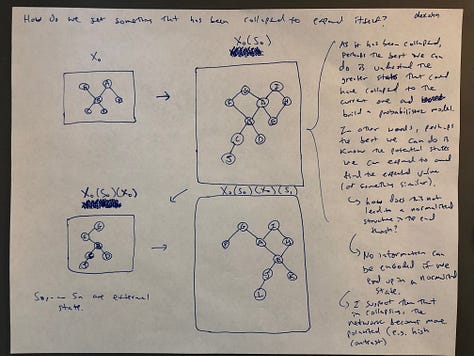 How do we get something that has been collapsed to expand itself?
X₀
X₀(S₀)
As it has been collapsed,
perhaps the best we can
do is understand the
greater states that could
have collapsed to the
current one and
build a probabilistic model.
In other words, perhaps
the best we can do is
know the potential states
we can expand to and
find the expected value
(or something similar).
↳ how does this not
lead to a normalized
structure in the end
though?
↳ No information can
be encoded if we
end up in a normalized
state.
↳ I suspect then that
in collapsing, the
network becomes more
polarized (e.g. high
contrast)
X₀(S₀)(X₀)
X₀(S₀)(X₀)(S₁
S₀, ... Sn are external
state.